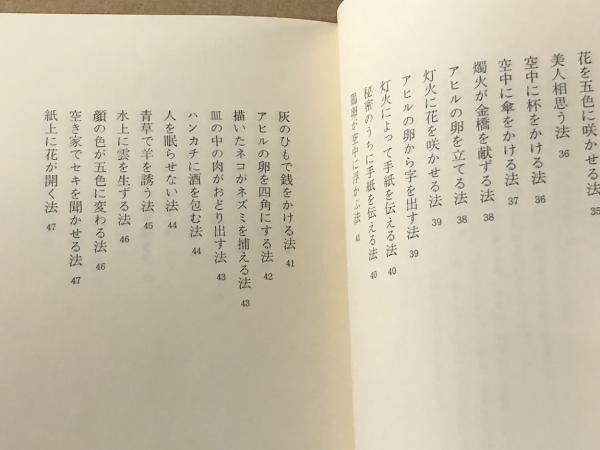 花を五色に咲かせる法 35
美人相思う法 36
空中に杯をかける法 36
空中に傘をかける法 37
燭火が金橋を献ずる法 38
アヒルの卵を立てる法 38
灯火に花を咲かせる法 39
アヒルの卵から字を出す法 39
灯火によって手紙を伝える法 40
秘密のうちに手紙を伝える法 40
鶏卵が空中に浮かぶ法 41
灰のひもで銭をかける法 41
アヒルの卵を四角にする法 42
描いたネコがネズミを捕える法 43
皿の中の肉がおどり出す法 43
ハンカチに酒を包む法 44
人を眠らせない法 44
青草で羊を誘う法 45
水上に雲を生ずる法 46
顔の色が五色に変わる法 46
空き家でセキを聞かせる法 47
紙上に花が開く法 47